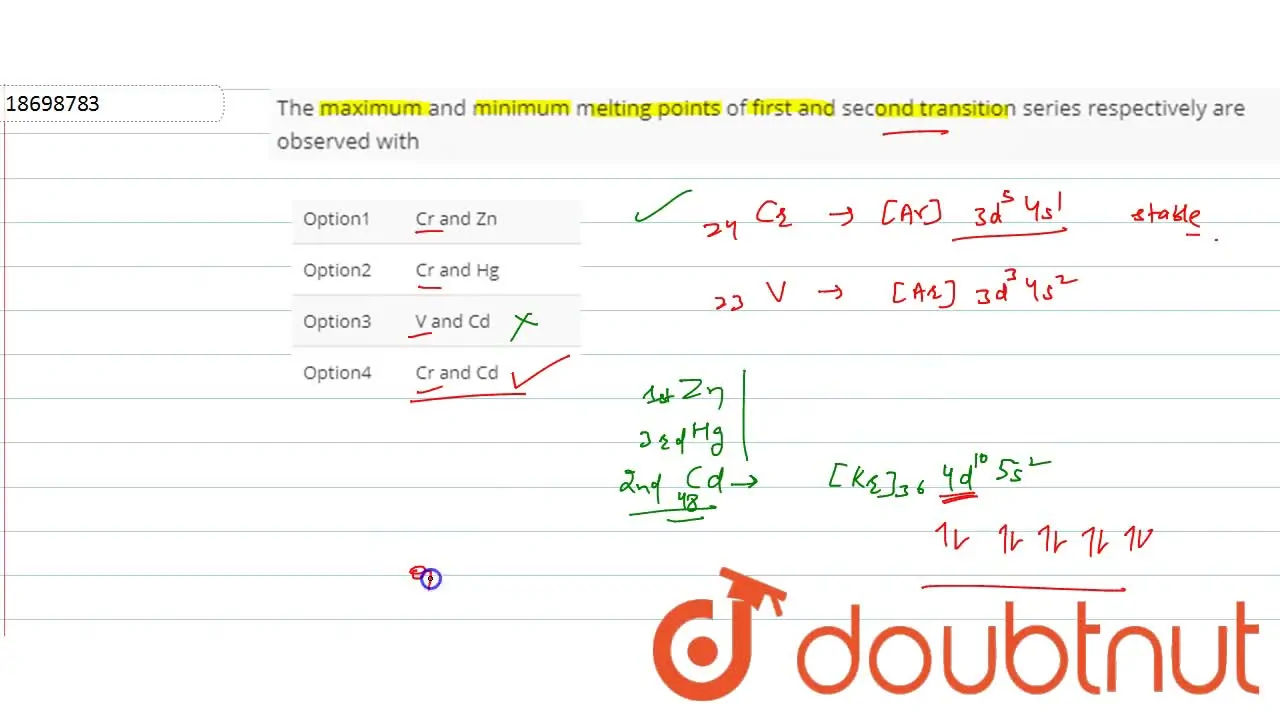 18698783
The maximum and minimum melting points of first and second transition series respectively are
observed with
Option1 Cr and Zn
Option2 Cr and Hg
Option3 V and Cd
Option4 Cr and Cd
24 Cr → [Ar] 3d⁵ 4s¹ stable
23 V → [Ar] 3d³ 4s²
1st Zn
3rd Hg
2nd Cd → [Kr]36 4d¹⁰ 5s²
48
doubtnut